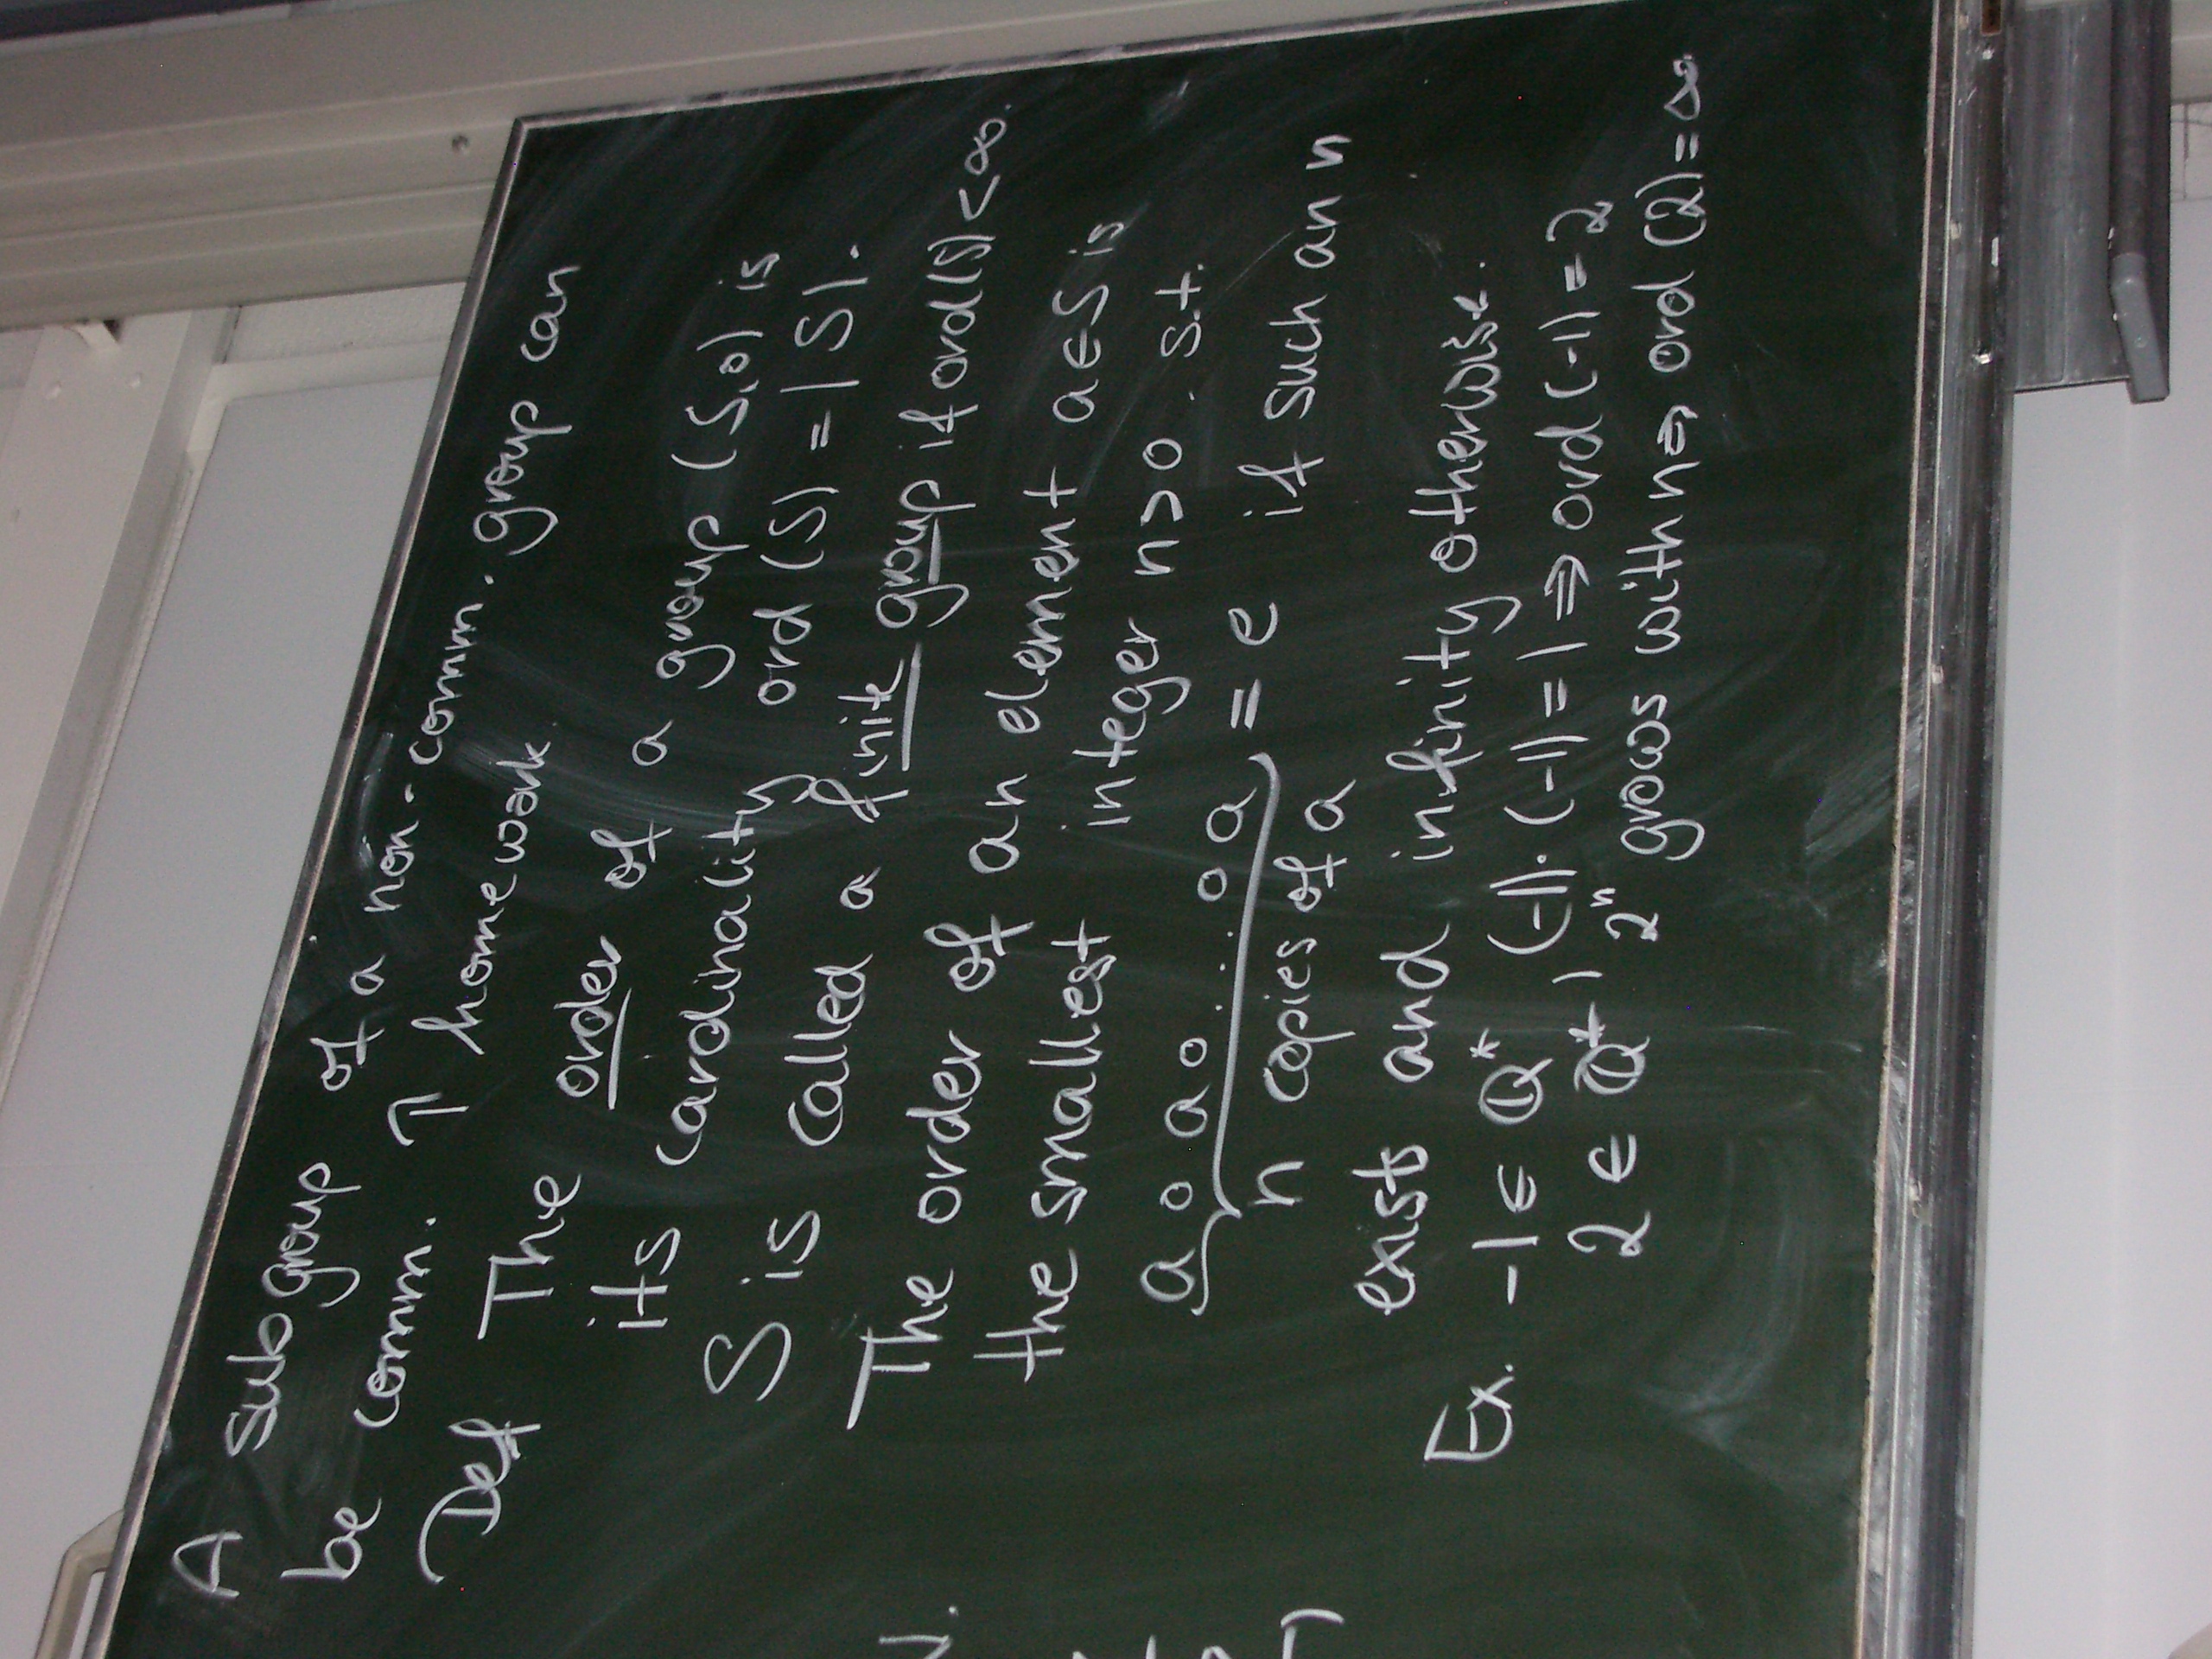 A subgroup of a non-comm. group can
be comm. ↑ homework
Def The order of a group (S,∘) is
its cardinality ord(S) = |S|.
S is called a finite group if ord(S)<∞.
The order of an element a∈S is
the smallest integer n>0 s.t.
a∘a∘...∘a = e if such an n
n copies of a
exists and infinity otherwise.
Ex. -1∈ℚ* (-1)·(-1)=1 ⇒ ord(-1)=2
2∈ℚ*, 2ⁿ grows with n ⇒ ord(2)=∞